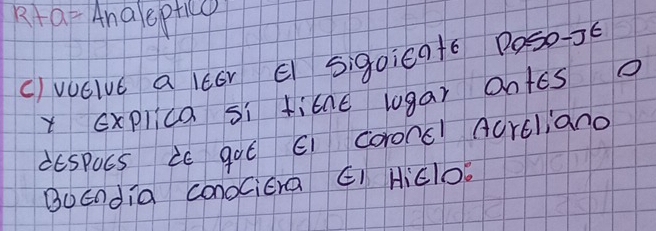 R+a= Analeptico
c) vuelve a leer el siguiente pasa-je
y explica si tiene lugar antes o
despues de que el coronel Aureliano
Buendía conociera el Hielo: